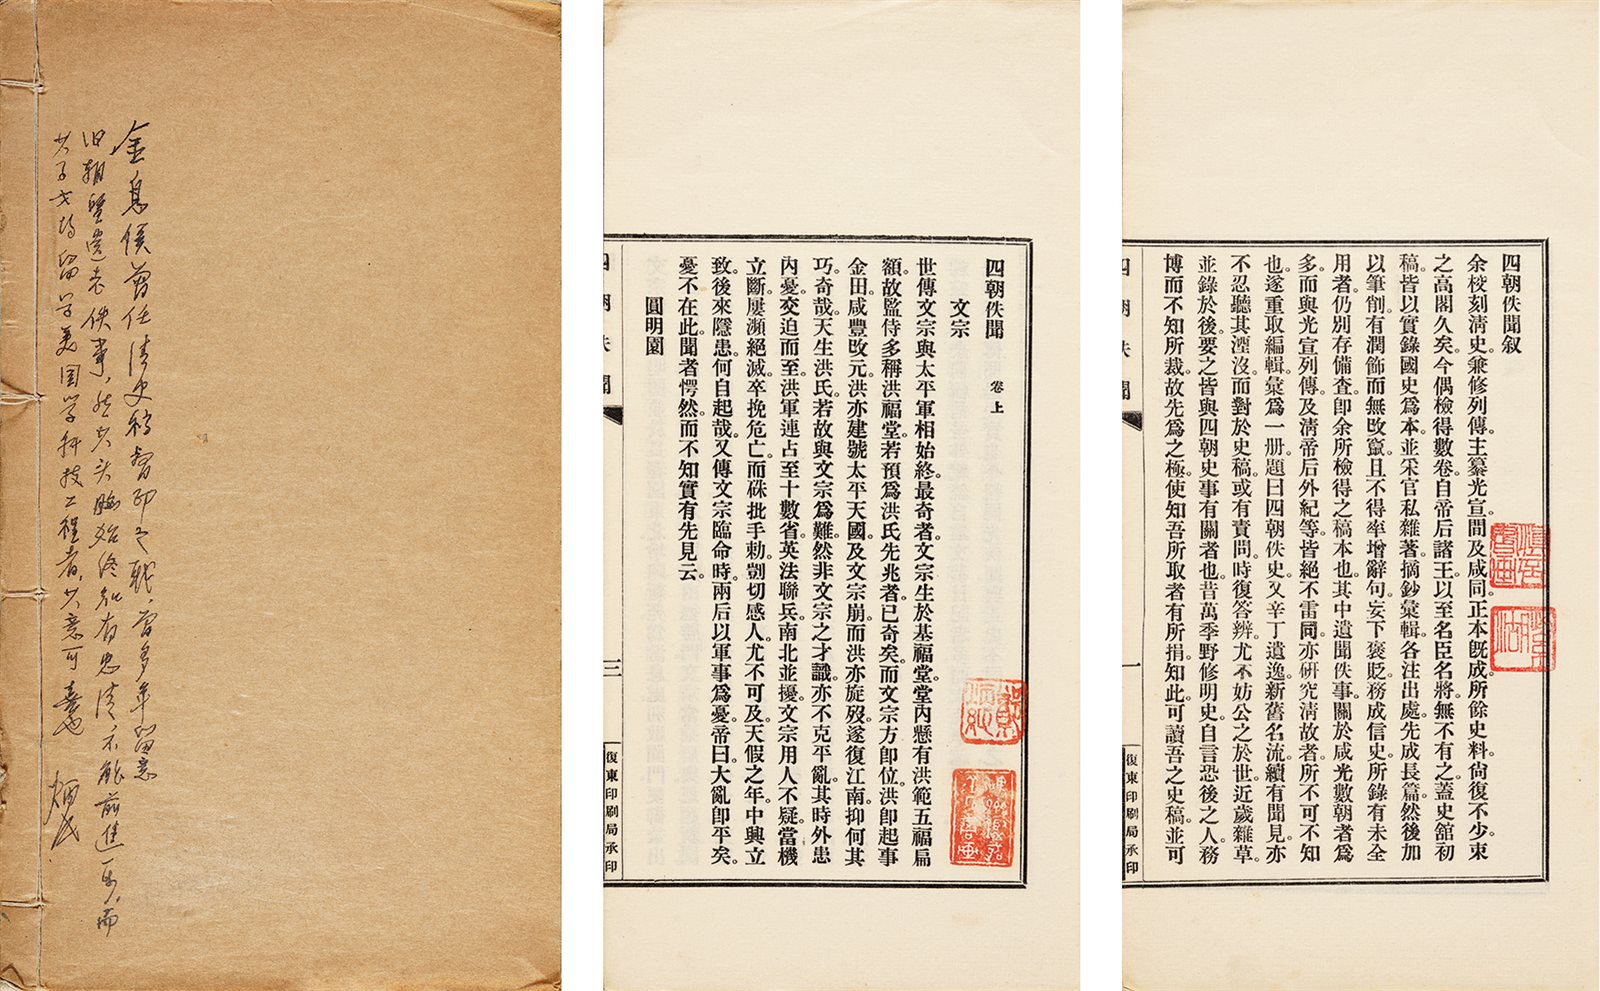 四朝佚聞叙
余校刻淸史兼修列傳主纂光宣間及咸同正本旣成所餘史料尙復不少束
之高閣久矣今偶檢得數卷自帝后諸王以至名臣名將無不有之蓋史館初
稿皆以實錄國史爲本並采官私雜著摘鈔彙輯各注出處先成長篇然後加
以筆削有潤飾而無改竄且不得率增辭句妄下褒貶務成信史所錄有未全
用者仍別存備査卽余所檢得之稿本也其中遺聞佚事關於咸光數朝者爲
多而與光宣列傳及淸帝后外紀等皆絕不雷同亦硏究淸故者所不可不知
也遂重取編輯彙爲一册題曰四朝佚史又辛丁遺逸新舊名流續有聞見亦
不忍聽其湮沒而對於史稿或有責問時復答辨尤不妨公之於世近歲雜草
並錄於後要之皆與四朝史事有關者也昔萬季野修明史自言恐後之人務
博而不知所裁故先爲之極使知吾所取者有所捐知此可讀吾之史稿並可
四朝佚聞
一
復東印刷局承印
四朝佚聞 卷上
文宗
世傳文宗與太平軍相始終最奇者文宗生於基福堂堂內懸有洪範五福扁
額故監侍多稱洪福堂若預爲洪氏先兆者已奇矣而文宗方卽位洪卽起事
金田咸豐改元洪亦建號太平天國及文宗崩而洪亦旋歿遂復江南抑何其
巧奇哉天生洪氏若故與文宗爲難然非文宗之才識亦不克平亂其時外患
內憂交迫而至洪軍連占至十數省英法聯兵南北並擾文宗用人不疑當機
立斷屢瀕絕滅卒挽危亡而硃批手勅剴切感人尤不可及天假之年中興立
致後來隱患何自起哉又傳文宗臨命時兩后以軍事爲憂帝曰大亂卽平矣
憂不在此聞者愕然而不知實有先見云
圓明園
四朝佚聞
三
復東印刷局承印
金息侯曾任清史稿督印之職，曾多年留意
旧朝暨遗老佚事，然其头脑始终抱有忠清不能前進一步，而
其子女均留学美国学科技工程者，其意可喜也
炳民